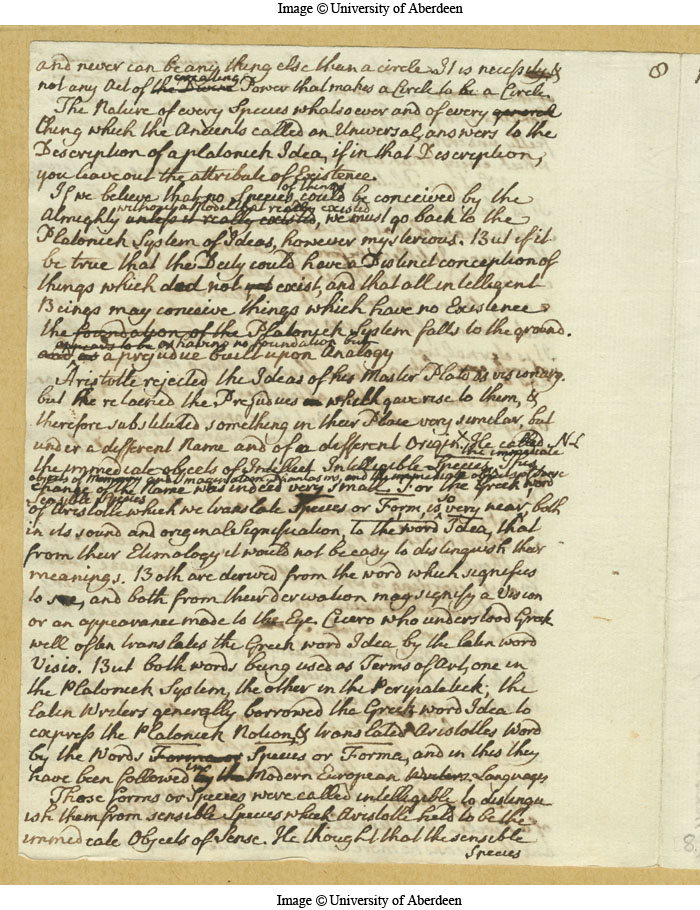 Image © University of Aberdeen
8
and never can be any thing else than a circle It is necessity &
creating
not any Act of the Divine Power that makes a Circle to be a Circle.
The Nature of every Species whatsoever and of every general
thing which the Ancients called an Universal, answers to the
Description of a platonick Idea, if in that Description,
you leave out the attribute of Existence.
of things
If we believe that no Species could be conceived by the
without a Model that really existed
Almighty unless it really existed, we must go back to the
Platonick System of Ideas, however mysterious. But if it
be true that the Deity could have a Distinct conception of
things which did not yet exist, and that all intelligent
Beings may conceive things which have no Existence
the foundation of the Platonick System falls to the ground.
appears to be having no foundation but
and as a prejudice built upon Analogy
Aristotle rejected the Ideas of his Master Plato as visionary.
but he retained the Prejudices which gave rise to them, &
therefore substituted something in their Place very similar but
under a different Name and of a different Origin. He called
the immediate
the immediate objects of Intellect Intelligible Species, This
objects of Memory and imagination Phantasms, and the immediate objects of Sense
change of the Name was indeed very small For the Greek word
Sensible Species
of Aristotle which we translate Species or Form, is so very near, both
in its sound and original Signification, to the word Idea, that
from their Etimology it would not be easy to distinguish their
meanings. Both are derived from the word which signifies
to see, and both from their derivation may signify a Vision
or an appearance made to the Eye. Cicero who understood Greek
well often translates the Greek word Idea by the latin word
Visio. But both words being used as Terms of Art, one in
the Platonick System, the other in the Peripatetick; the
Latin Writers generally borrowed the Greek word Idea to
express the Platonick Notion, & translated Aristotles Word
by the Words Forma or Species or Forma, and in this they
have been followed in by the Modern European Writers Languages
Those forms or Species were called intelligible to distingu
ish them from sensible Species which Aristotle held to be the
immediate Objects of Sense. He thought that the sensible
Species
8
Image © University of Aberdeen